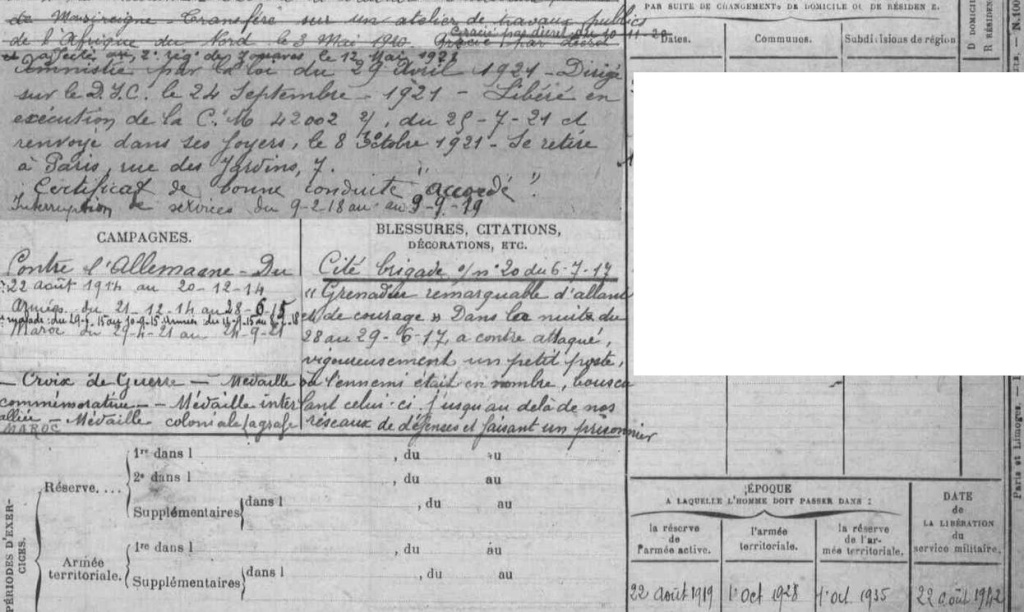 de Transféré sur un atelier de travaux publics
de l'Afrique du Nord le 3 Mai 1920 Gracié par décret
Gracié par décret du 10-11-20
affecté au 2e rég. de zouaves le 12 Mai 1921
Amnistié par la loi du 29 Avril 1921 - Dirigé
sur le D.I.C. le 24 Septembre - 1921 - Libéré en
exécution de la C. M 42002 2/, du 25-7-21 et
renvoyé dans ses foyers, le 8 Octobre 1921 - Se retire
à Paris, rue des Jardins, 7.
Certificat de bonne conduite "accordé".
Interruption de services du 9-2-18 au 9-9-19
CAMPAGNES.
Contre l'Allemagne - Du
22 août 1914 au 20-12-14
Armées du 21-12-14 au 28-6-15
malade du 29-6-15 au 10-9-15 Armées du
Maroc du 29-4-21 au 24-9-21
— Croix de Guerre — Médaille
commémorative — Médaille inter
alliée Médaille coloniale (agrafe
MAROC
BLESSURES, CITATIONS,
DÉCORATIONS, ETC.
Cité brigade o/ n° 20 du 6-7-17
"Grenadier remarquable d'allant
et de courage » Dans la nuit du
28 au 29-6-17, a contre attaqué,
vigoureusement un petit poste,
où l'ennemi était en nombre, bouscu
lant celui-ci jusqu'au delà de nos
réseaux de défenses et faisant un prisonnier
PAR SUITE DE CHANGEMENTS DE DOMICILE OU DE RÉSIDENCE.
Dates.
Communes.
Subdivisions de région
D DOMICILE
R RÉSIDEN
PÉRIODES D'EXER-
CICES.
Réserve....
1re dans l , du au
2e dans l , du au
Supplémentaires dans l , du au
Armée
territoriale.
1re dans l , du au
Supplémentaires dans l , du au
ÉPOQUE
A LAQUELLE L'HOMME DOIT PASSER DANS :
la réserve
de
l'armée active.
l'armée
territoriale.
la réserve
de l'ar-
mée territoriale.
DATE
de
LA LIBÉRATION
du
service militaire.
22 août 1919
1er oct 1928
1er oct. 1935
22 août 1942
Paris et Limoges. —
N. 100